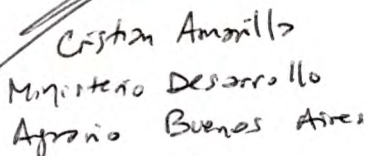 Cristian Amarilla
Ministerio Desarrollo
Agrario Buenos Aires